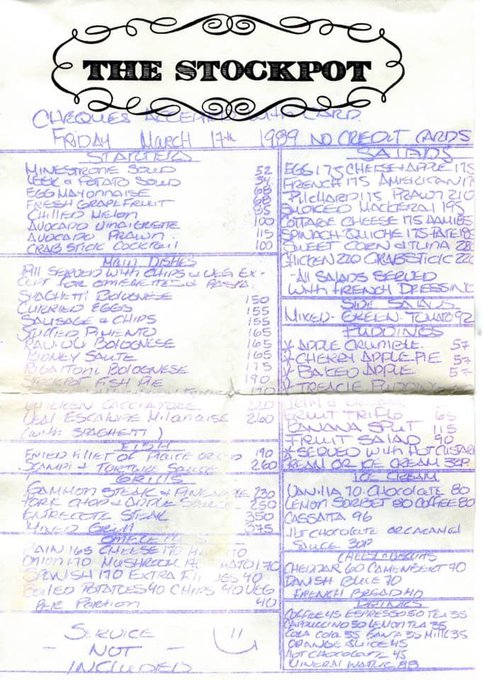 THE STOCKPOT
CHEQUES ACCEPTED WITH CARD.
FRIDAY MARCH 17th 1989 NO CREDIT CARDS
STARTERS
MINESTRONE SOUP 52
LEEK & POTATO SOUP
EGG MAYONNAISE 68
FRESH GRAPEFRUIT 68
CHILLED MELON
AVOCADO VINAIGRETTE 100
AVOCADO PRAWN 115
CRAB STICK COCKTAIL 100
MAIN DISHES
ALL SERVED WITH CHIPS & VEG EX-
CEPT FOR OMELETTES & PASTA.
SPAGHETTI BOLOGNESE 150
CURRIED EGGS 155
SAUSAGE & CHIPS 155
PIMENTO 165
RAVIOLI BOLOGNESE 165
KIDNEY SAUTE 165
RIGATONI BOLOGNESE 175
FISH PIE 190
CHICKEN CACCIATORE
VEAL ESCALOPE MILANAISE 260
(WITH SPAGHETTI)
FISH
FRIED FILLET OF PLAICE OR COD 190
SCAMPI & TARTARE SAUCE 260
GRILLS
GAMMON STEAK & PINEAPPLE 230
PORK CHOP & APPLE SAUCE 250
ENTRECOTE STEAK 350
MIXED GRILL 375
OMELETTES
PLAIN 165 CHEESE 170 HAM 170
ONION 170 MUSHROOM 170 TOMATO 170
SPANISH 170 EXTRA FILLINGS 40
BOILED POTATOES 40 CHIPS 40 VEG
PER PORTION 40
SERVICE
- NOT -
INCLUDED
SALADS
EGG 175 CHEESE & APPLE 175
FRENCH 175 AMERICAN
PILCHARD 175 PRAWN 210
SMOKED MACKEREL
COTTAGE CHEESE 175
SPINACH QUICHE 175 PATE
SWEET CORN & TUNA
CHICKEN 220 CRABSTICK
- ALL SALADS SERVED
WITH FRENCH DRESSING
SIDE SALADS
MIXED - GREEN - TOMATO 92
PUDDINGS
* APPLE CRUMBLE 57
* CHERRY APPLE PIE 57
* BAKED APPLE 57
* TREACLE PUDDING
FRUIT TRIFLE 65
BANANA SPLIT 115
FRUIT SALAD 90
* SERVED WITH HOT CUSTARD
CREAM OR ICE CREAM 30P
ICE CREAM
VANILLA 70 CHOCOLATE 80
LEMON SORBET 80 COFFEE 80
CASSATA 96
HOT CHOCOLATE OR CARAMEL
SAUCE 30P
CHEESE & BISCUITS
CHEDDAR 60 CAMEMBERT 70
DANISH BLUE 70
FRENCH BREAD 40
DRINKS
COFFEE 45 ESPRESSO 50 TEA 35
CAPPUCCINO 50 LEMON TEA 35
COCA COLA 55 FANTA 50 MILK 35
ORANGE JUICE 45
HOT CHOCOLATE 45
MINERAL WATER